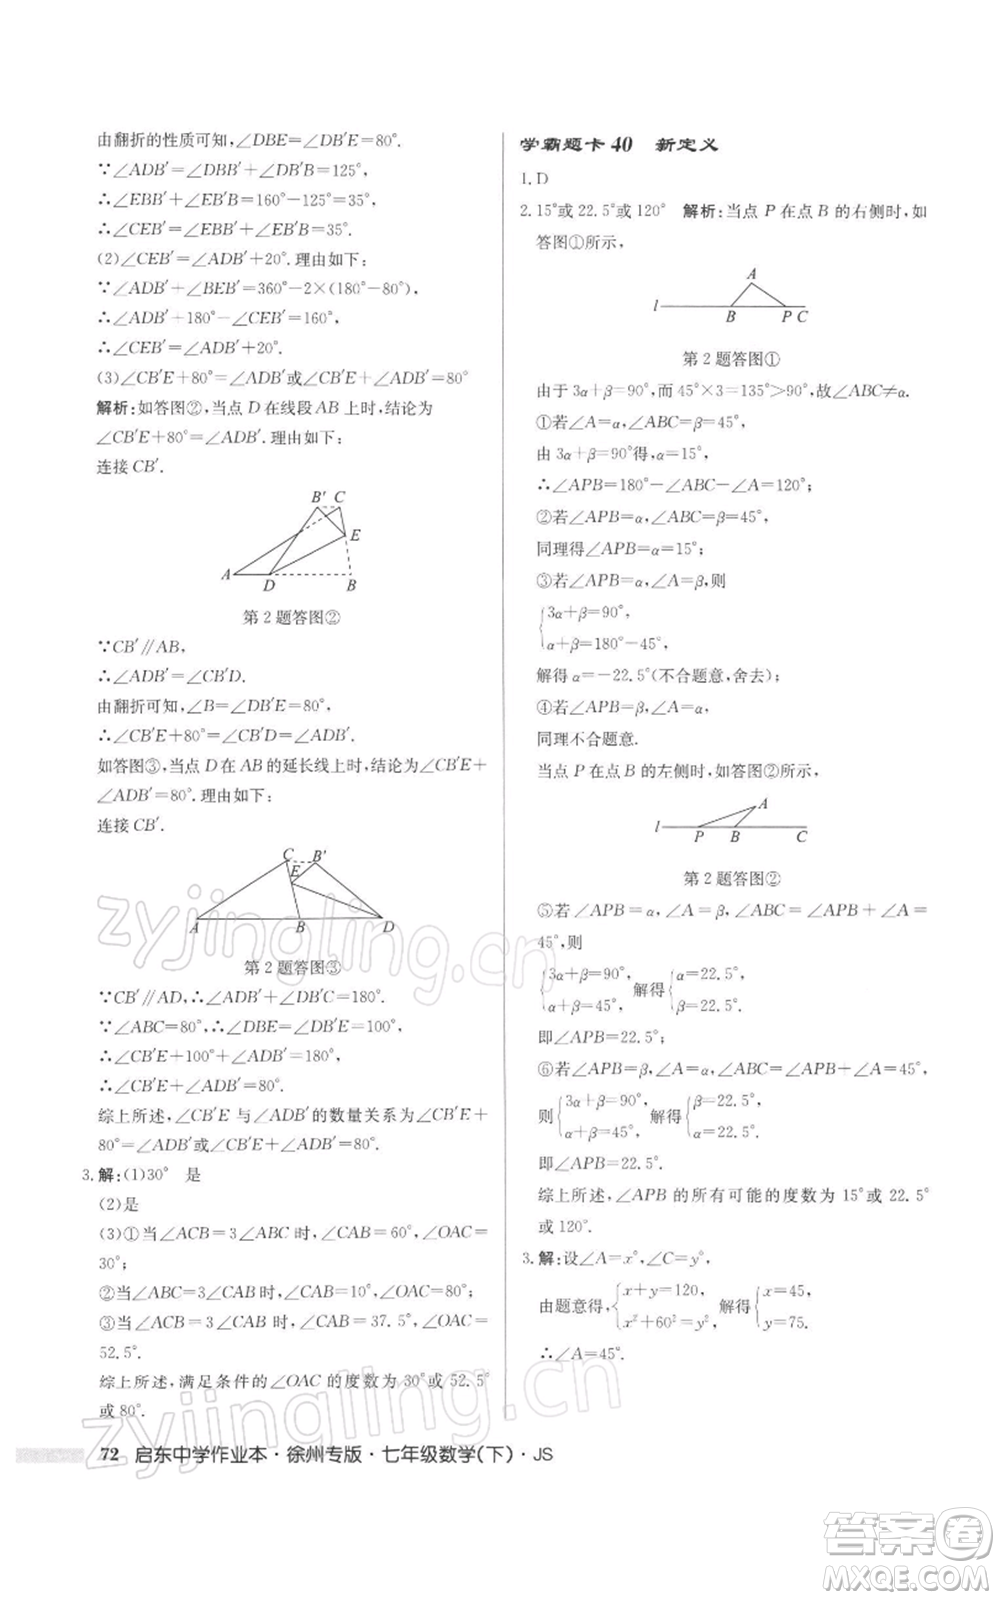 由翻折的性质可知,∠DBE=∠DB′E=80°.
∵∠ADB′=∠DBB′+∠DB′B=125°,
∴∠EBB′+∠EB′B=160°-125°=35°,
∴∠CEB′=∠EBB′+∠EB′B=35°.
(2)∠CEB′=∠ADB′+20°.理由如下:
∵∠ADB′+∠BEB′=360°-2×(180°-80°),
∴∠ADB′+180°-∠CEB′=160°,
∴∠CEB′=∠ADB′+20°.
(3)∠CB′E+80°=∠ADB′或∠CB′E+∠ADB′=80°
解析:如答图②,当点 D 在线段 AB 上时,结论为
∠CB′E+80°=∠ADB′.理由如下:
连接 CB′.
B′ C
E
A D B
第 2 题答图②
∵CB′∥AB,
∴∠ADB′=∠CB′D.
由翻折可知,∠B=∠DB′E=80°,
∴∠CB′E+80°=∠CB′D=∠ADB′.
如答图③,当点 D 在 AB 的延长线上时,∠CB′E+
∠ADB′=80°.理由如下:
连接 CB′.
C B′
E
A B D
第 2 题答图③
∵CB′∥AD,∴∠ADB′+∠DB′C=180°.
∵∠ABC=80°,∴∠DBE=∠DB′E=100°,
∴∠CB′E+100°+∠ADB′=180°,
∴∠CB′E+∠ADB′=80°.
综上所述,∠CB′E 与∠ADB′的数量关系为∠CB′E+
80°=∠ADB′或∠CB′E+∠ADB′=80°.
3.解:(1)30° 是
(2)是
(3)①当∠ACB=3∠ABC 时,∠CAB=60°,∠OAC=
30°;
②当∠ABC=3∠CAB 时,∠CAB=10°,∠OAC=80°;
③当∠ACB=3∠CAB 时,∠CAB=37.5°,∠OAC=
52.5°.
综上所述,满足条件的∠OAC 的度数为 30°或 52.5°
或 80°.
学霸题卡 40 新定义
1.D
2.15°或 22.5°或 120° 解析:当点 P 在点 B 的右侧时,如
答图①所示,
A
l B P C
第 2 题答图①
由于 3α+β=90°,而 45°×3=135°>90°,故∠ABC≠α.
①若∠A=α,∠ABC=β=45°,
由 3α+β=90°得,α=15°,
∴∠APB=180°-∠ABC-∠A=120°;
②若∠APB=α,∠ABC=β=45°,
同理得∠APB=α=15°;
③若∠APB=α,∠A=β,则
3α+β=90°,
α+β=180°-45°,
解得 α=-22.5°(不合题意,舍去);
④若∠APB=β,∠A=α,
同理不合题意.
当点 P 在点 B 的左侧时,如答图②所示,
A
l P B C
第 2 题答图②
⑤若∠APB=α,∠A=β,∠ABC=∠APB+∠A=
45°,则
3α+β=90°, α+β=45°, 解得 α=22.5°, β=22.5°,
即∠APB=22.5°;
⑥若∠APB=β,∠A=α,∠ABC=∠APB+∠A=45°,
则 3α+β=90°, α+β=45°, 解得 β=22.5°, α=22.5°.
即∠APB=22.5°.
综上所述,∠APB 的所有可能的度数为 15°或 22.5°
或 120°.
3.解:设∠A=x°,∠C=y°,
由题意得, x+y=120, x²+60²=y², 解得 x=45, y=75.
∴∠A=45°.
72 启东中学作业本·徐州专版·七年级数学(下)·JS
zyjingling.cn
zyjingling.cn
答案圈
MXQE.COM